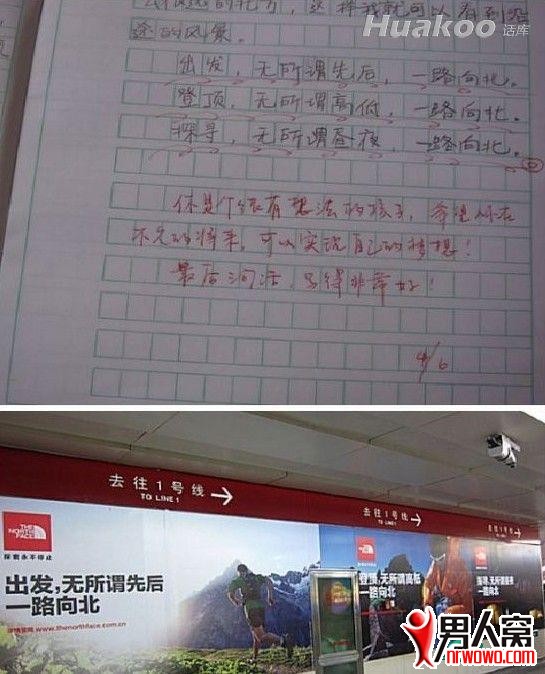 Huakoo 话库
途的风景。
出发，无所谓先后，一路向北。
登顶，无所谓高低，一路向北。
探寻，无所谓昼夜，一路向北。
你是个很有想法的孩子，希望你在
不久的将来，可以实现自己的梦想！
最后三句话，写得非常好！
4/6
去往1号线
TO LINE 1
去往1号线
TO LINE 1
去往1号线
THE NORTH FACE
探索永不停止
出发,无所谓先后
一路向北
www.thenorthface.com.cn
登顶,无所谓高低
一路向北
一路向北
男人窝
nrwowo.com